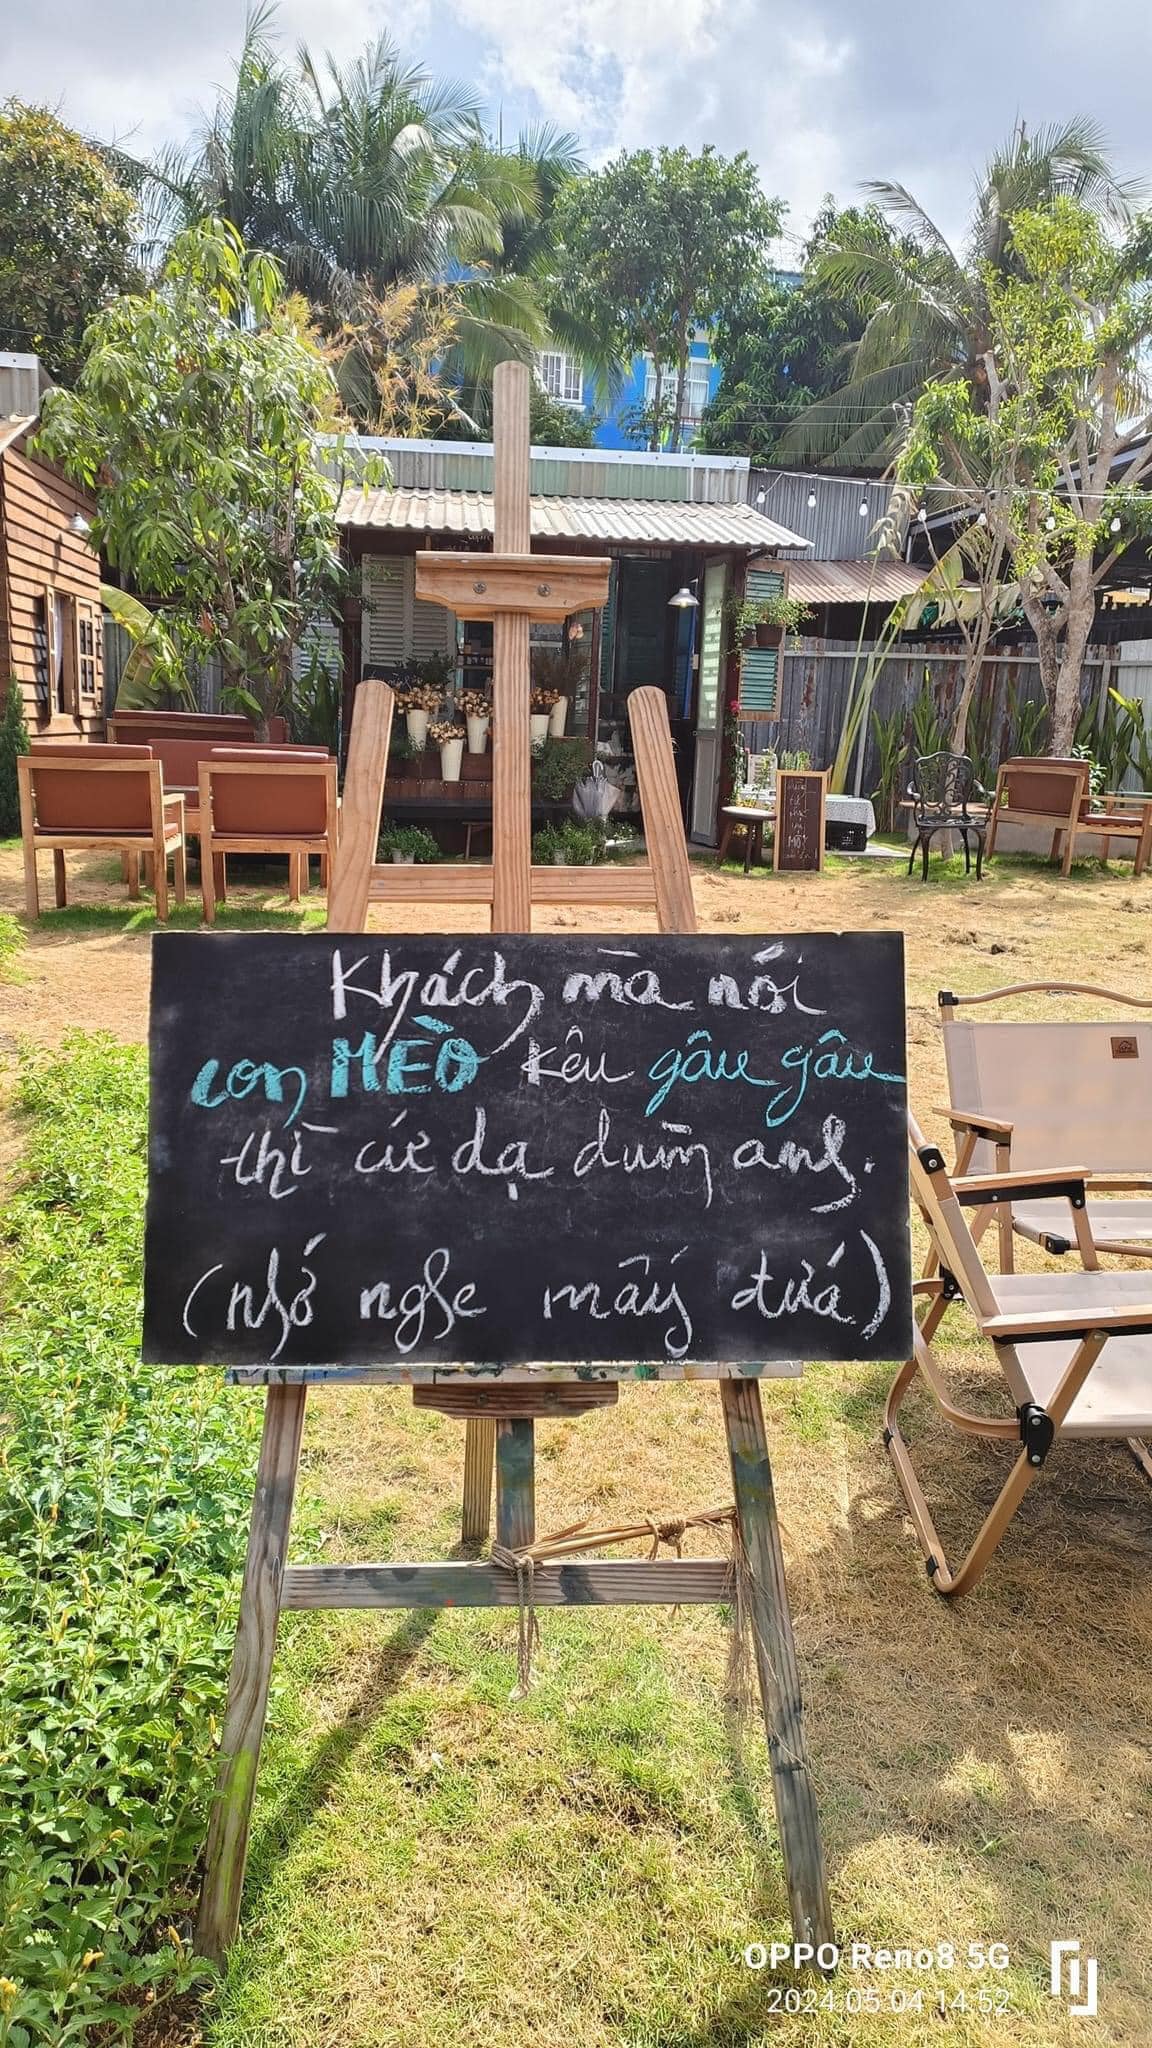 Khách mà nói
con MÈO kêu gâu gâu
thì cứ dạ dùm anh.
(nhớ nghe mấy đứa)
OPPO Reno8 5G
2024.05.04 14:52